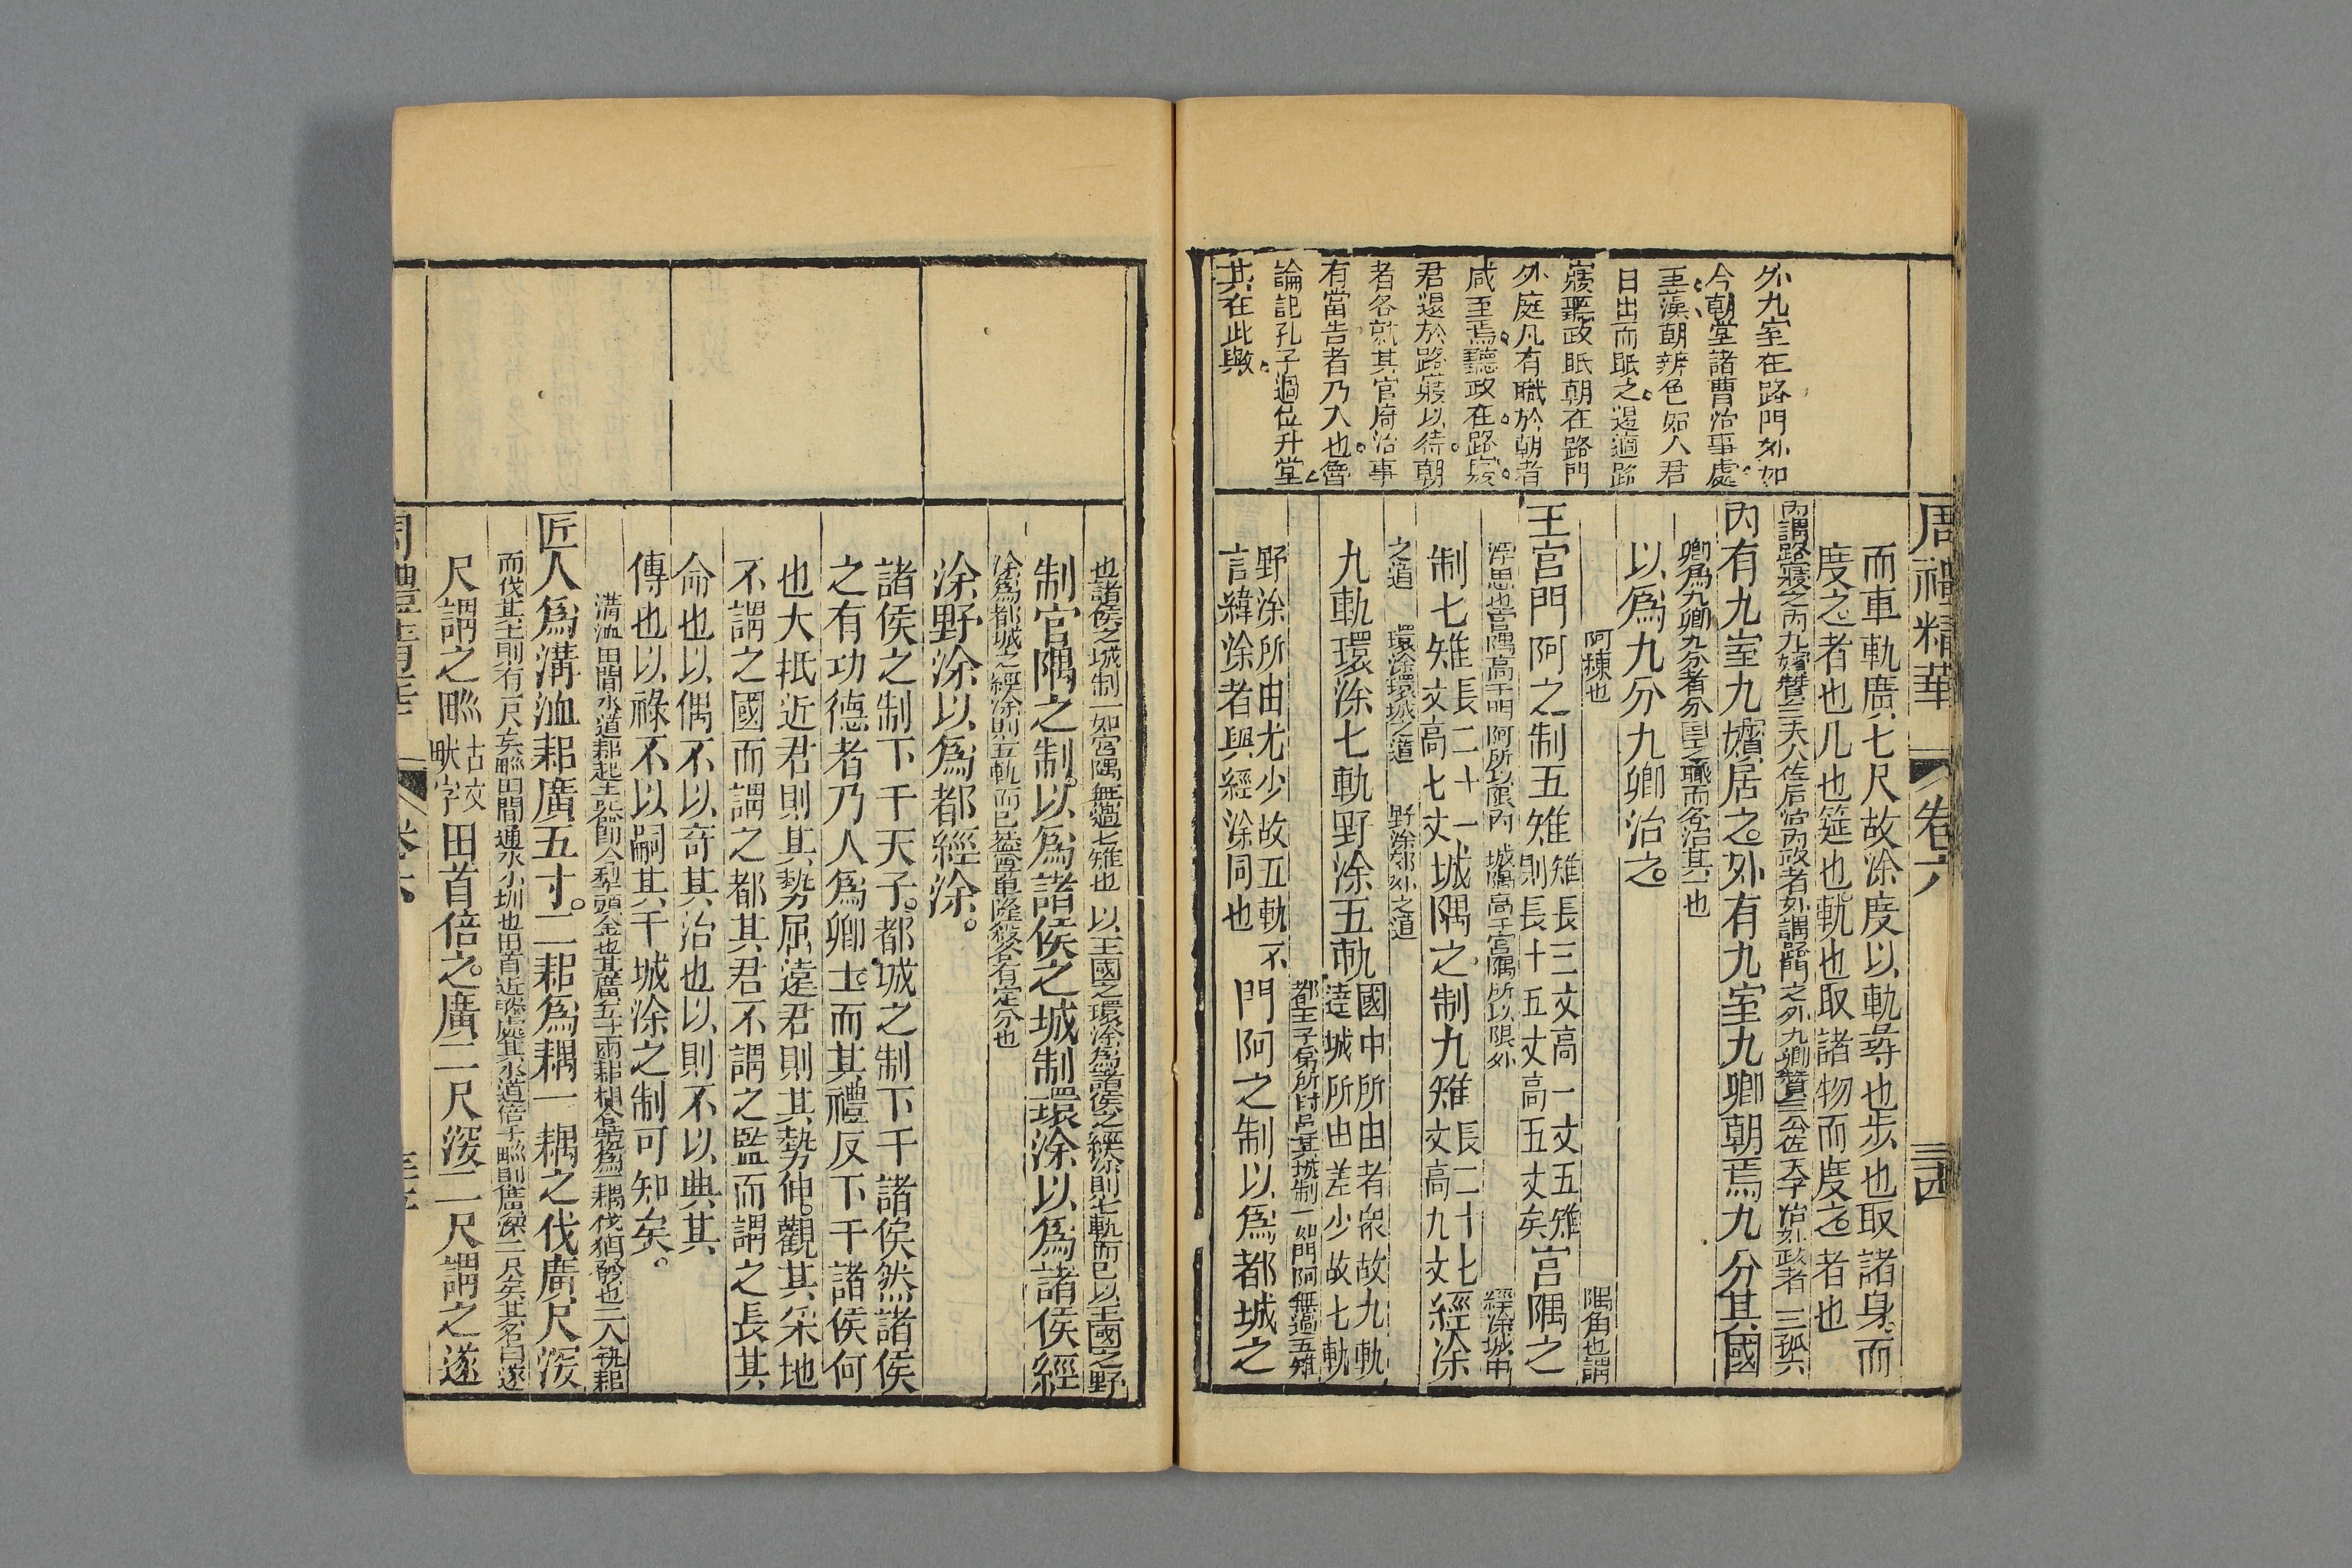 周禮精華
卷六
三四
外九室在路門外如
今朝堂諸曹治事處
玉藻朝辨色始入君
日出而眂之退適路
寢聽政眂朝在路門
外庭凡有職於朝者
咸至焉聽政在路寢
君退於路寢以待朝
者各就其官府治事
有當告者乃入也魯
論記孔子過位升堂
其在此與
而車軌廣七尺故涂度以軌尋也步也取諸身而
度之者也几也筵也軌也取諸物而度之者也
內謂路寢之內九嬪贊三夫人佐后治內政者外謂路門之外九卿贊三公佐天子治外政者三孤六
內有九室九嬪居之外有九室九卿朝焉九分其國
卿爲九卿九分者分國之職而各治其一也
以爲九分九卿治之
阿棟也 隅角也謂
王宮門阿之制五雉雉長三丈高一丈五雉則長十五丈高五丈矣宮隅之
浮思也宮隅高于門阿所以限內 城隅高于宮隅所以限外 經涂城中
制七雉長二十一丈高七丈城隅之制九雉長二十七丈高九丈經涂
之道 環涂環城之道 野涂郊外之道
九軌環涂七軌野涂五軌國中所由者衆故九軌逵城所由差少故七軌
都王子弟所封邑其城制一如門阿無過五雉
野涂所由尤少故五軌不言緯涂者與經涂同也門阿之制以爲都城之
也諸侯之城制一如宮隅無過七雉也 以王國之環涂爲諸侯之經涂則七軌而已以王國之野
制宮隅之制以爲諸侯之城制環涂以爲諸侯經
涂爲都城之經涂則五軌而已蓋尊卑隆殺各有定分也
涂野涂以爲都經涂
諸侯之制下于天子都城之制下于諸侯然諸侯
之有功德者乃入爲卿士而其禮反下于諸侯何
也大抵近君則其勢屈遠君則其勢伸觀其采地
不謂之國而謂之都其君不謂之監而謂之長其
命也以偶不以奇其治也以則不以典其
傳也以祿不以嗣其于城涂之制可知矣
溝洫田間水道耜起土器卽今犁頭金也其廣五寸兩耜相合號爲一耦伐猶發也二人執耜
匠人爲溝洫耜廣五寸二耜爲耦一耦之伐廣尺深
而伐其土則有一尺矣甽田間通水小圳也田首近遂處其水道倍于甽則廣深二尺矣其名曰遂
尺謂之甽古文畎字田首倍之廣二尺深二尺謂之遂